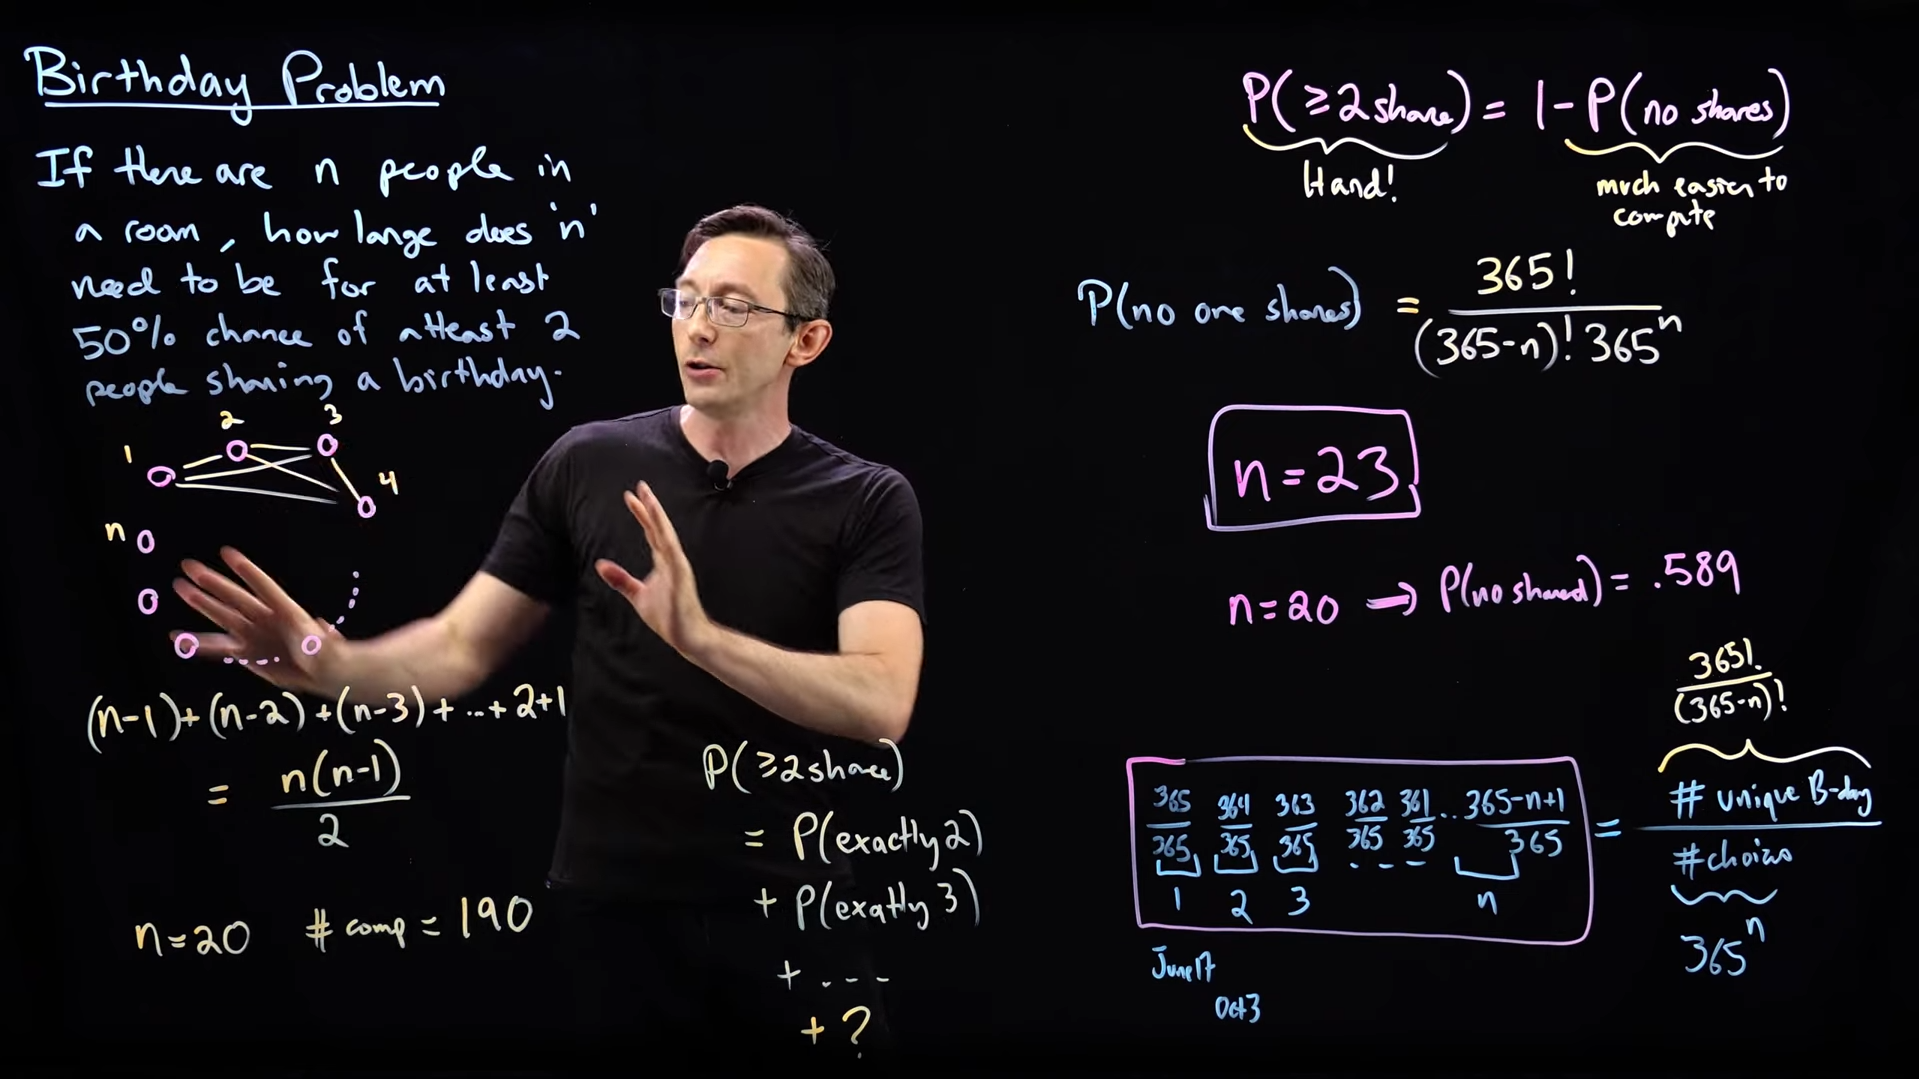 Birthday Problem
If there are n people in
a room, how large does 'n'
need to be for at least
50% chance of atleast 2
people sharing a birthday.
1 2 3 4
n
(n-1)+(n-2)+(n-3)+...+2+1
= n(n-1)/2
n=20 # comp = 190
P(≥2 share)
= P(exactly 2)
+ P(exatly 3)
+ ...
+ ?
P(≥2 share) = 1-P(no shares)
Hard!
much easier to
compute
P(no one shares) = 365!/((365-n)! 365^n)
n=23
n=20 → P(no shared) = .589
365!/(365-n)!
365/365 364/365 363/365 362/365 361/365 .. 365-n+1/365 = # unique B-day/#choices
1 2 3 --- n
365^n
June 17
Oct 3